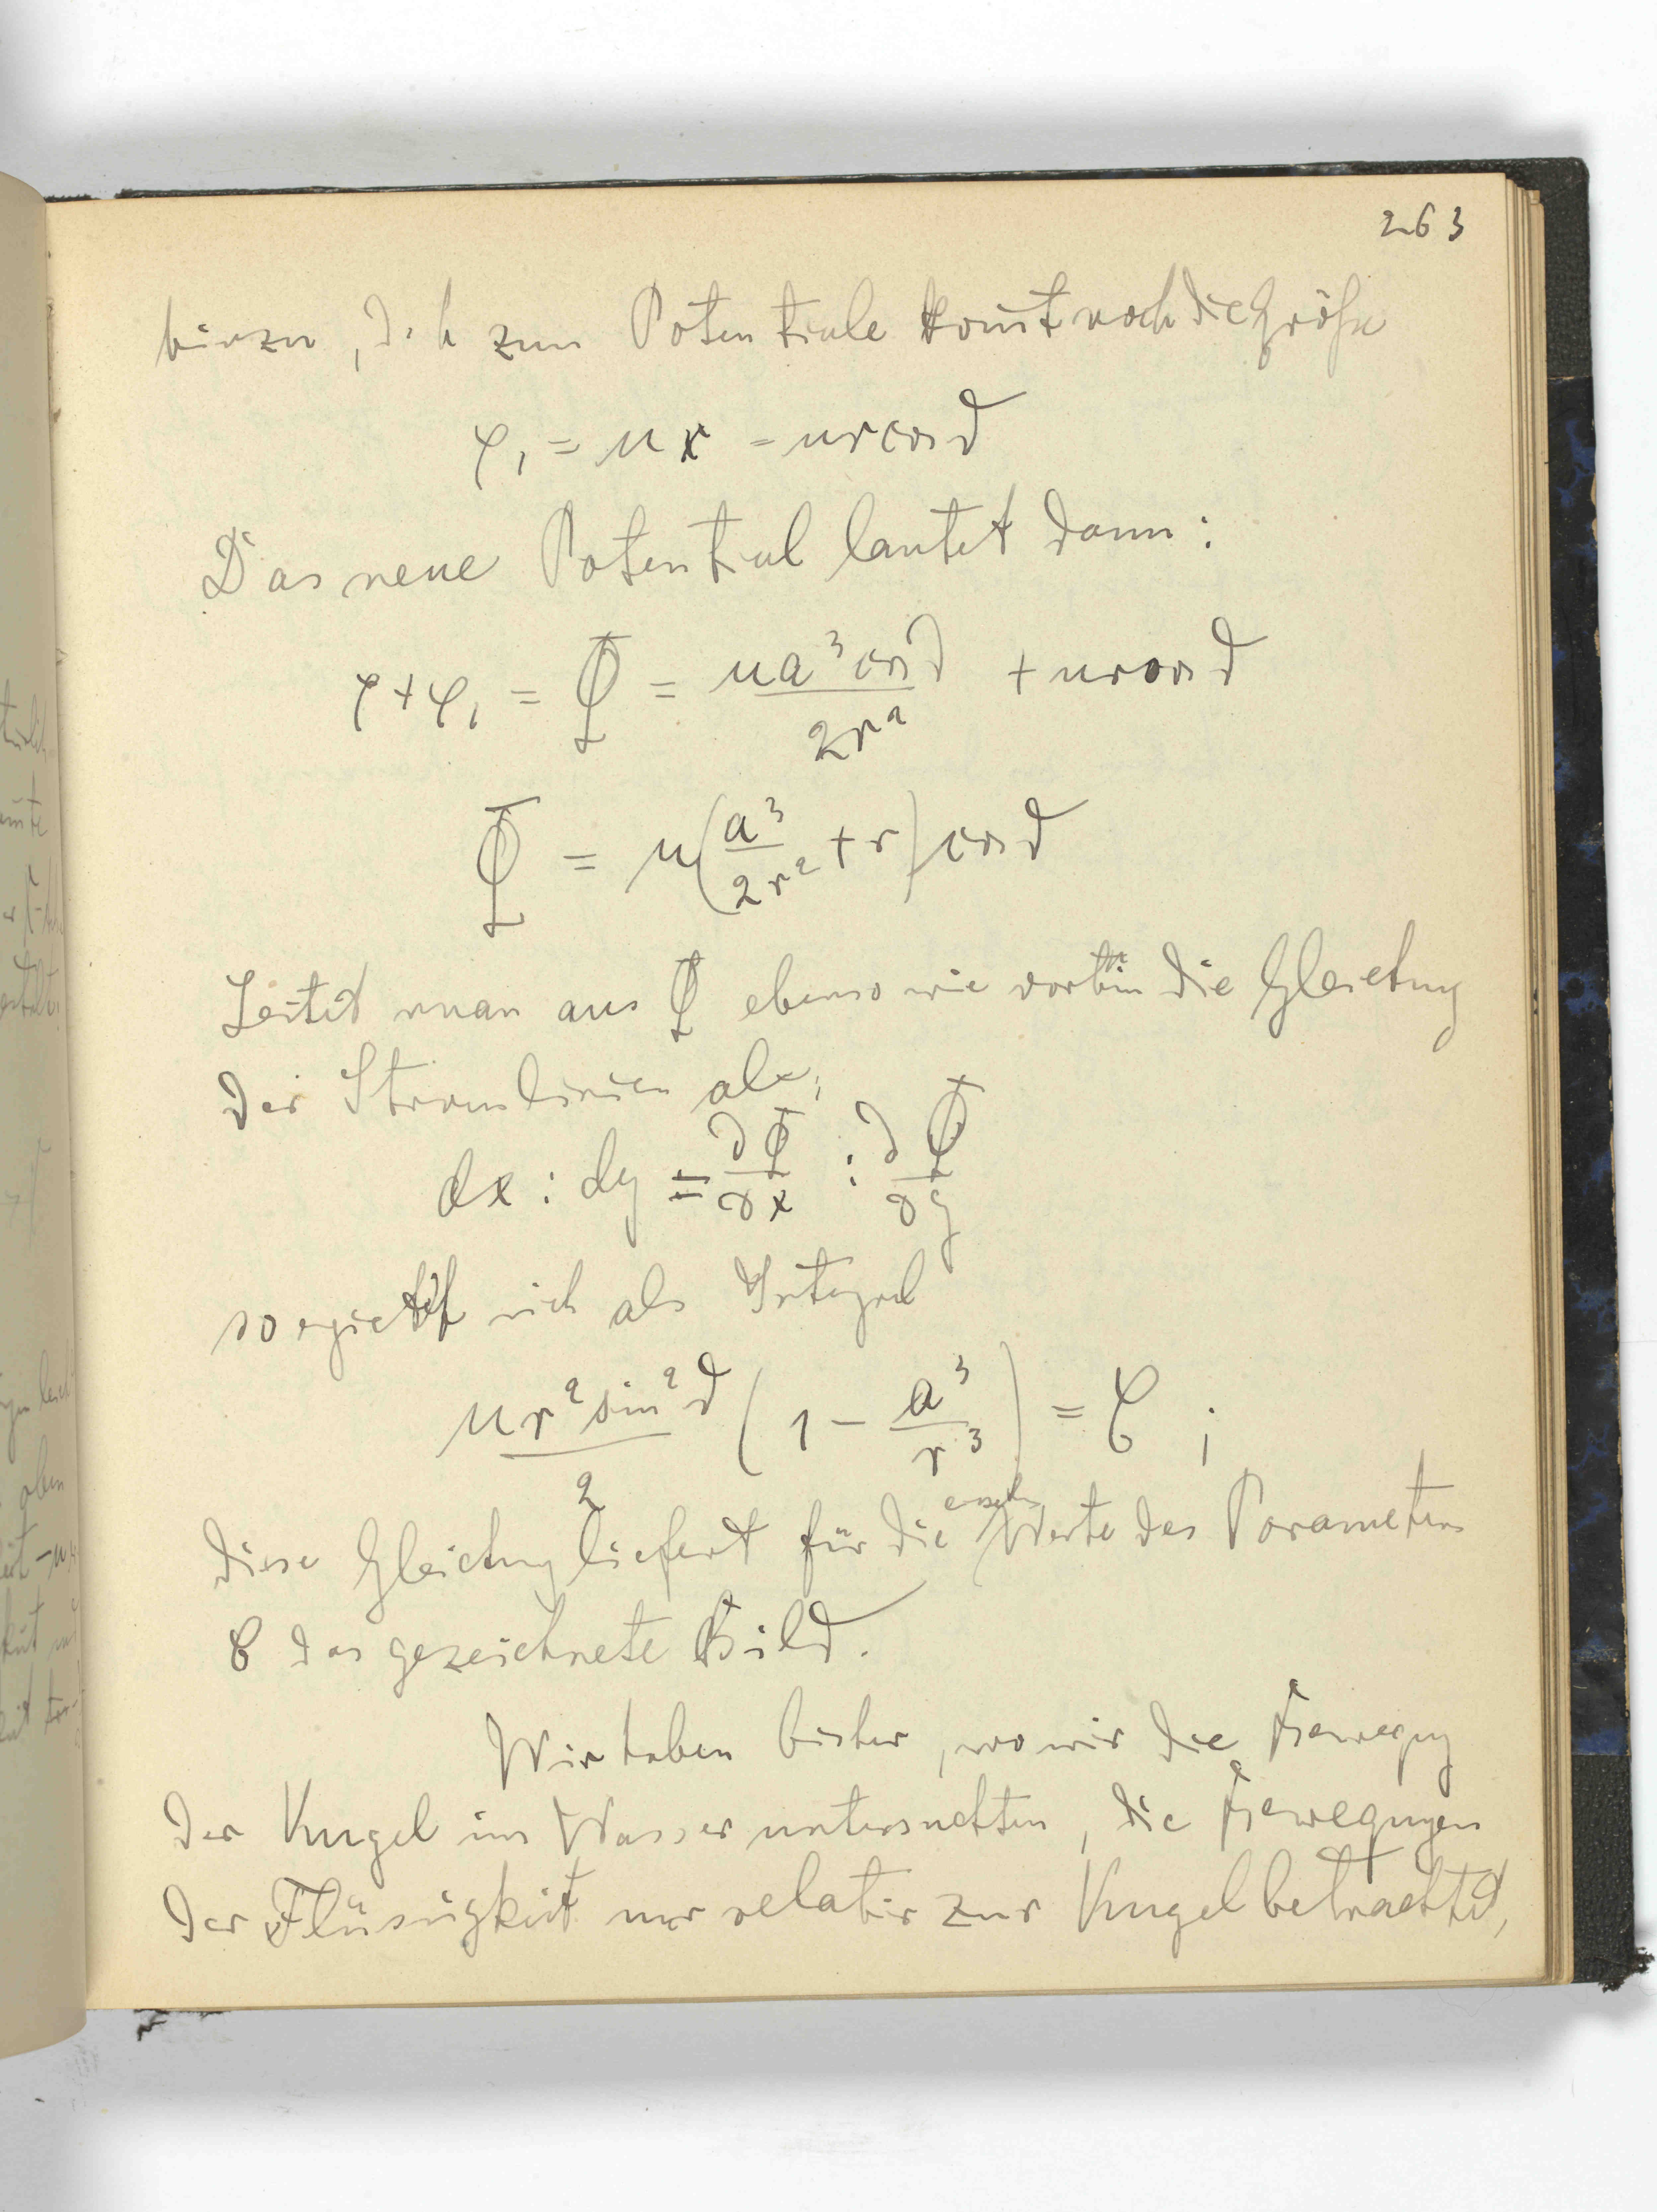 263
hinzu, d. h zum Potentiale komt noch die Größe
φ₁ = ux = ur cos ϑ
Das neue Potential lautet dann:
φ + φ₁ = Φ = ua³ cos ϑ / 2r² + ur cos ϑ
Φ = u(a³ / 2r² + r) cos ϑ
Leitet man aus Φ ebenso wie vorhin die Gleichung
der Stromlinien ab,
dx : dy = ∂Φ/∂x : ∂Φ/∂y
so ergiebt sich als Integral
ur² sin² ϑ / 2 (1 − a³ / r³) = C ;
diese Gleichung liefert für die einzelnen Werte des Parameters
C das gezeichnete Bild.
Wir haben bisher, wo wir die Bewegung
der Kugel im Wasser untersuchten, die Bewegungen
der Flüssigkeit nur relativ zur Kugel betrachtet,